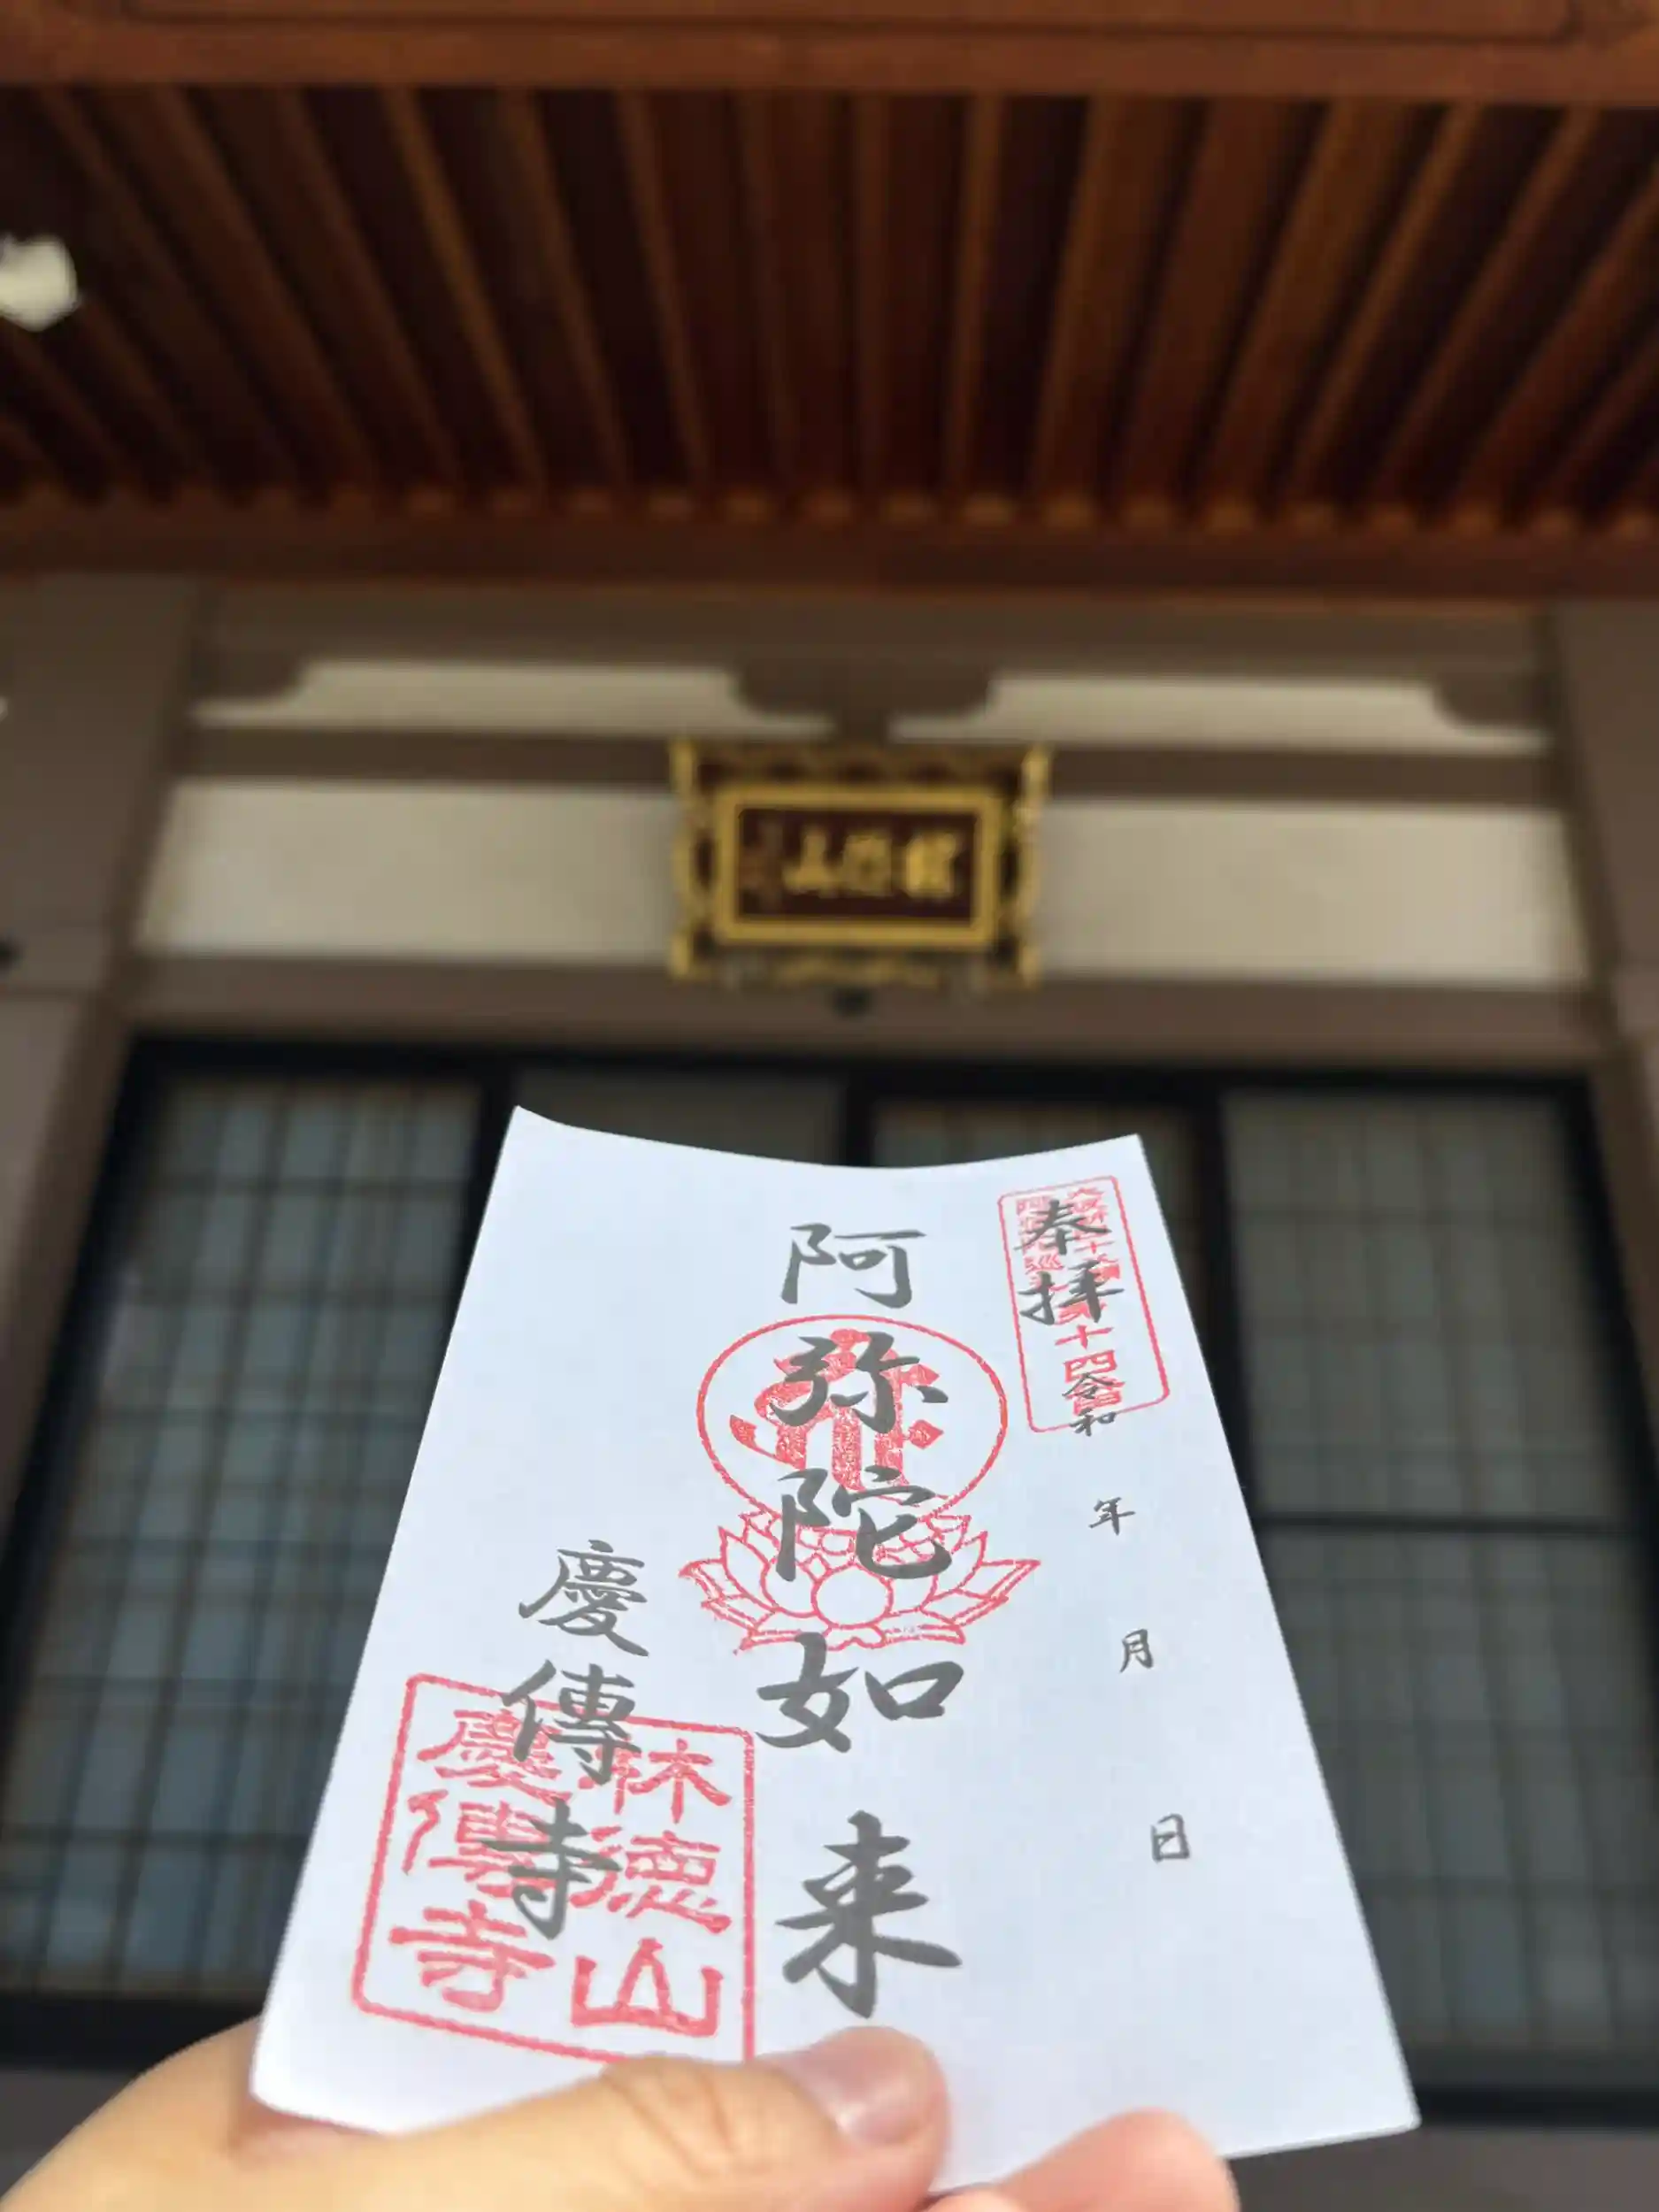 奉拝
令和 年 月 日
十四
阿弥陀如来
慶傳寺
林徳山
慶傳寺